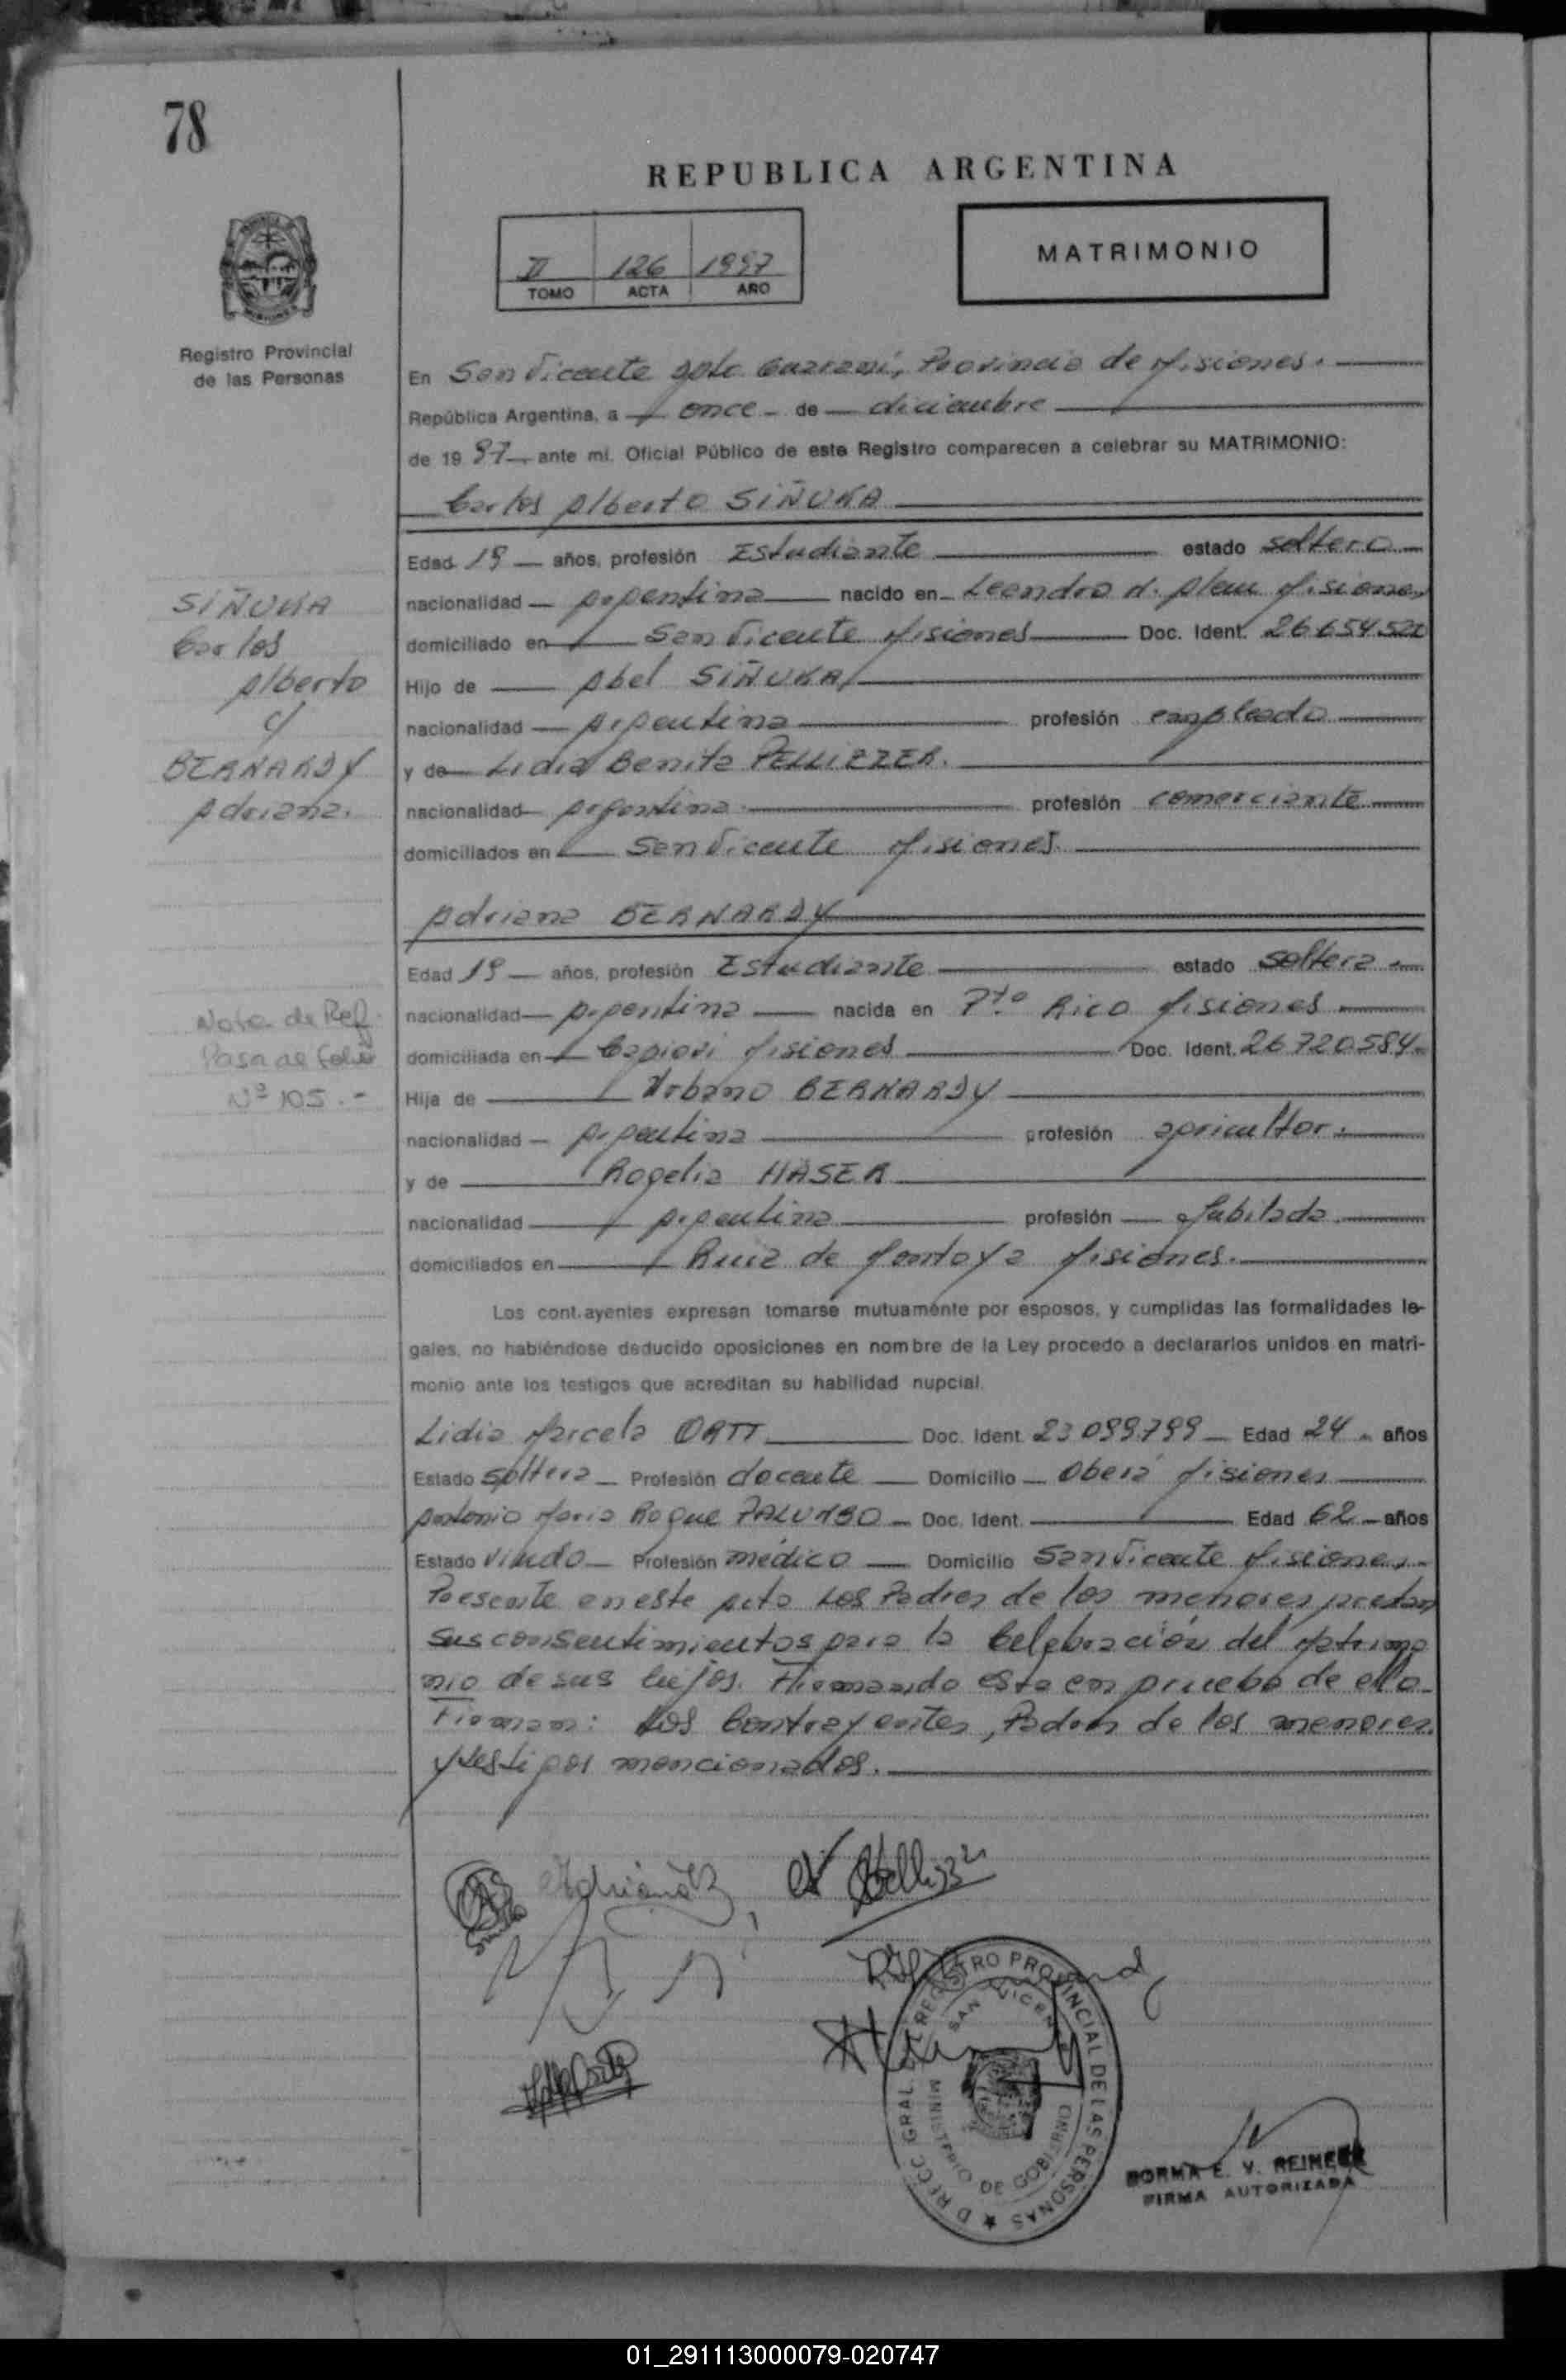 78
REPUBLICA ARGENTINA
MATRIMONIO
II 126 1997
TOMO ACTA AÑO
Registro Provincial
de las Personas
En San Vicente Dpto. Guaraní, Provincia de Misiones.
República Argentina, a once de diciembre
de 19 97 ante mí, Oficial Público de este Registro comparecen a celebrar su MATRIMONIO:
Carlos Alberto SIÑUKA
Edad 19 años, profesión Estudiante estado soltero
nacionalidad Argentina nacido en Leandro N. Alem Misiones
domiciliado en San Vicente Misiones Doc. Ident. 26.654.520
Hijo de Abel SIÑUKA
nacionalidad Argentina profesión empleado
y de Lidia Benita PELLIZZER.
nacionalidad Argentina profesión comerciante
domiciliados en San Vicente Misiones
SIÑUKA
Carlos
Alberto
c/
BERNARDY
Adriana.
Adriana BERNARDY
Edad 19 años, profesión Estudiante estado soltera
nacionalidad Argentina nacida en Pto. Rico Misiones
domiciliada en Capiovi Misiones Doc. Ident. 26.720.584
Hija de Urbano BERNARDY
nacionalidad Argentina profesión agricultor.
y de Rogelia HASER
nacionalidad Argentina profesión Jubilada
domiciliados en Ruiz de Montoya Misiones.
Nota de Ref.
Pasa al folio
Nº 105.-
Los cont.ayentes expresan tomarse mutuamente por esposos, y cumplidas las formalidades le-
gales, no habiéndose deducido oposiciones en nombre de la Ley procedo a declararlos unidos en matri-
monio ante los testigos que acreditan su habilidad nupcial.
Lidia Marcela ORTT Doc. Ident. 23.099.799 Edad 24 años
Estado soltera Profesión docente Domicilio Oberá Misiones
Antonio Maria Roque PALUMBO Doc. Ident. Edad 62 años
Estado viudo Profesión médico Domicilio San Vicente Misiones
Presente en este acto Los Padres de los menores prestan
sus consentimientos para la Celebración del Matrimo
nio de sus hijos. Firmando esta en prueba de ello.
Firman: Los Contrayentes, Padres de los menores
y testigos mencionados.
Adriana B
REGISTRO PROVINCIAL DE LAS PERSONAS
SAN VICENTE
MINISTERIO DE GOBIERNO
NORMA E. V. REINECK
FIRMA AUTORIZADA
01_291113000079-020747